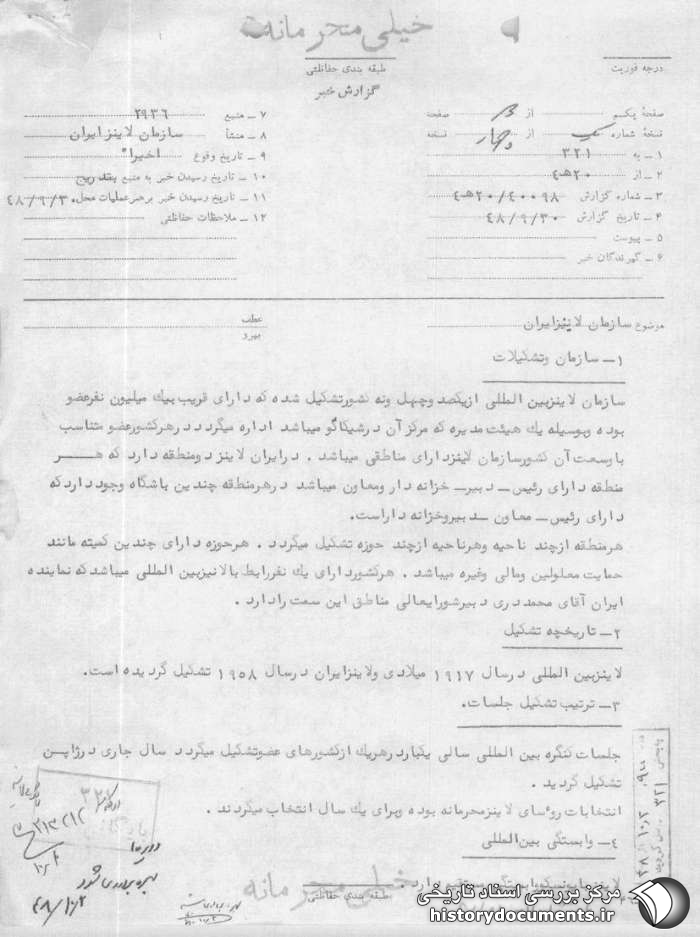 خیلی محرمانه
درجه فوریت
طبقه بندی حفاظتی
گزارش خبر
صفحه یکم از ۳ صفحه
نسخه شماره یک از چهار نسخه
۱ ـ به ۳۲۱
۲ ـ از ۲۰هـ۴
۳ ـ شماره گزارش ۲۰/۴۰۰۹۸هـ۴
۴ ـ تاریخ گزارش ۴۸/۹/۳۰
۵ ـ پیوست
۶ ـ گیرندگان خبر
۷ ـ منبع ۲۹۳۶
۸ ـ منشأ سازمان لاینز ایران
۹ ـ تاریخ وقوع اخیرا"
۱۰ ـ تاریخ رسیدن خبر به منبع بتدریج
۱۱ ـ تاریخ رسیدن خبر برهبر عملیات محل ۴۸/۹/۳۰
۱۲ ـ ملاحظات حفاظتی
موضوع سازمان لاینزایران
عطف
پیرو
۱ـ سازمان وتشکیلات
سازمان لاینزبین المللی ازیکصد وچهل ونه کشورتشکیل شده که دارای قریب بیك میلیون نفرعضو
بوده وبوسیله یك هیئت مدیره که مرکز آن درشیکاگو میباشد اداره میگردد درهرکشورعضو متناسب
باوسعت آن کشورسازمان لاینزدارای مناطقی میباشد . درایران لاینز دومنطقه دارد که هر
منطقه دارای رئیس ـ دبیر ـ خزانه دار ومعاون میباشد درهرمنطقه چندین باشگاه وجود دارد که
دارای رئیس ـ معاون ـ دبیروخزانه داراست.
هرمنطقه ازچند ناحیه وهرناحیه ازچند حوزه تشکیل میگردد . هرحوزه دارای چندین کمیته مانند
حمایت معلولین ومالی وغیره میباشد . هرکشوردارای یك نفررابط بالاینزبین المللی میباشد که نماینده
ایران آقای محمددری دبیرشورایعالی مناطق این سمت رادارد .
۲ـ تاریخچه تشکیل
لاینزبین المللی درسال ۱۹۱۷ میلادی ولاینزایران درسال ۱۹۵۸ تشکیل گردیده است.
۳ـ ترتیب تشکیل جلسات.
جلسات کنگره بین المللی سالی یکباردرهریك ازکشورهای عضوتشکیل میگردد سال جاری درژاپن
تشکیل گردید .
انتخابات روسای لاینزمحرمانه بوده وبرای یك سال انتخاب میگردند .
۴ـ وابستگی بین المللی
۳۲۲
بهره برداری شود
۴۸/۱۰/۲
خیلی محرمانه
طبقه بندی حفاظتی
مرکز بررسی اسناد تاریخی
historydocuments.ir